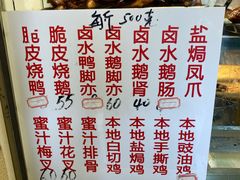 500克
脆皮烧鸭
脆皮烧鹅
55
卤水鸭脚亦
卤水鹅脚亦
60
卤水鹅肾
40
卤水鹅肠
盐焗凤爪
蜜汁梅叉
蜜汁花叉
蜜汁排骨
本地白切鸡
本地盐焗鸡
本地手撕鸡
本地豉油鸡